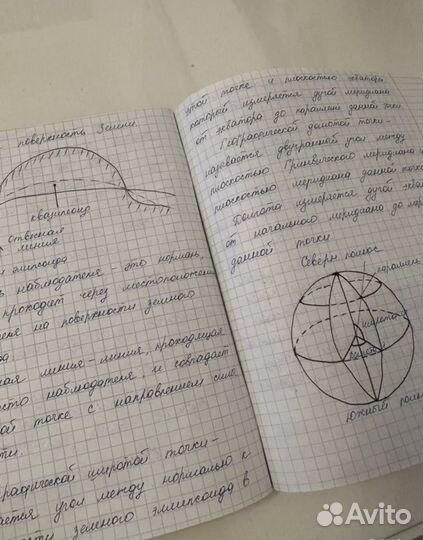 поверхность Земли
квазигеоид
отвесная
линия
эллипсоида
наблюдателя - это нормаль,
проходит через местоположение
на поверхности земного
линия - линия, проходящая
место наблюдателя и совпадает
точке с направлением силы
широтой точки -
угол между нормалью к
земного эллипсоида в
этой точке и плоскостью экватора
которой измеряется дугой меридиана
от экватора до параллели данной точки
Географической долготой точки -
называется двугранный угол между
плоскостью Гринвичского меридиана и
плоскостью меридиана данной точки
Долгота измеряется дугой
от начального меридиана до
данной точки.
Северн. полюс
параллель
широта
долгота
Южный
Avito